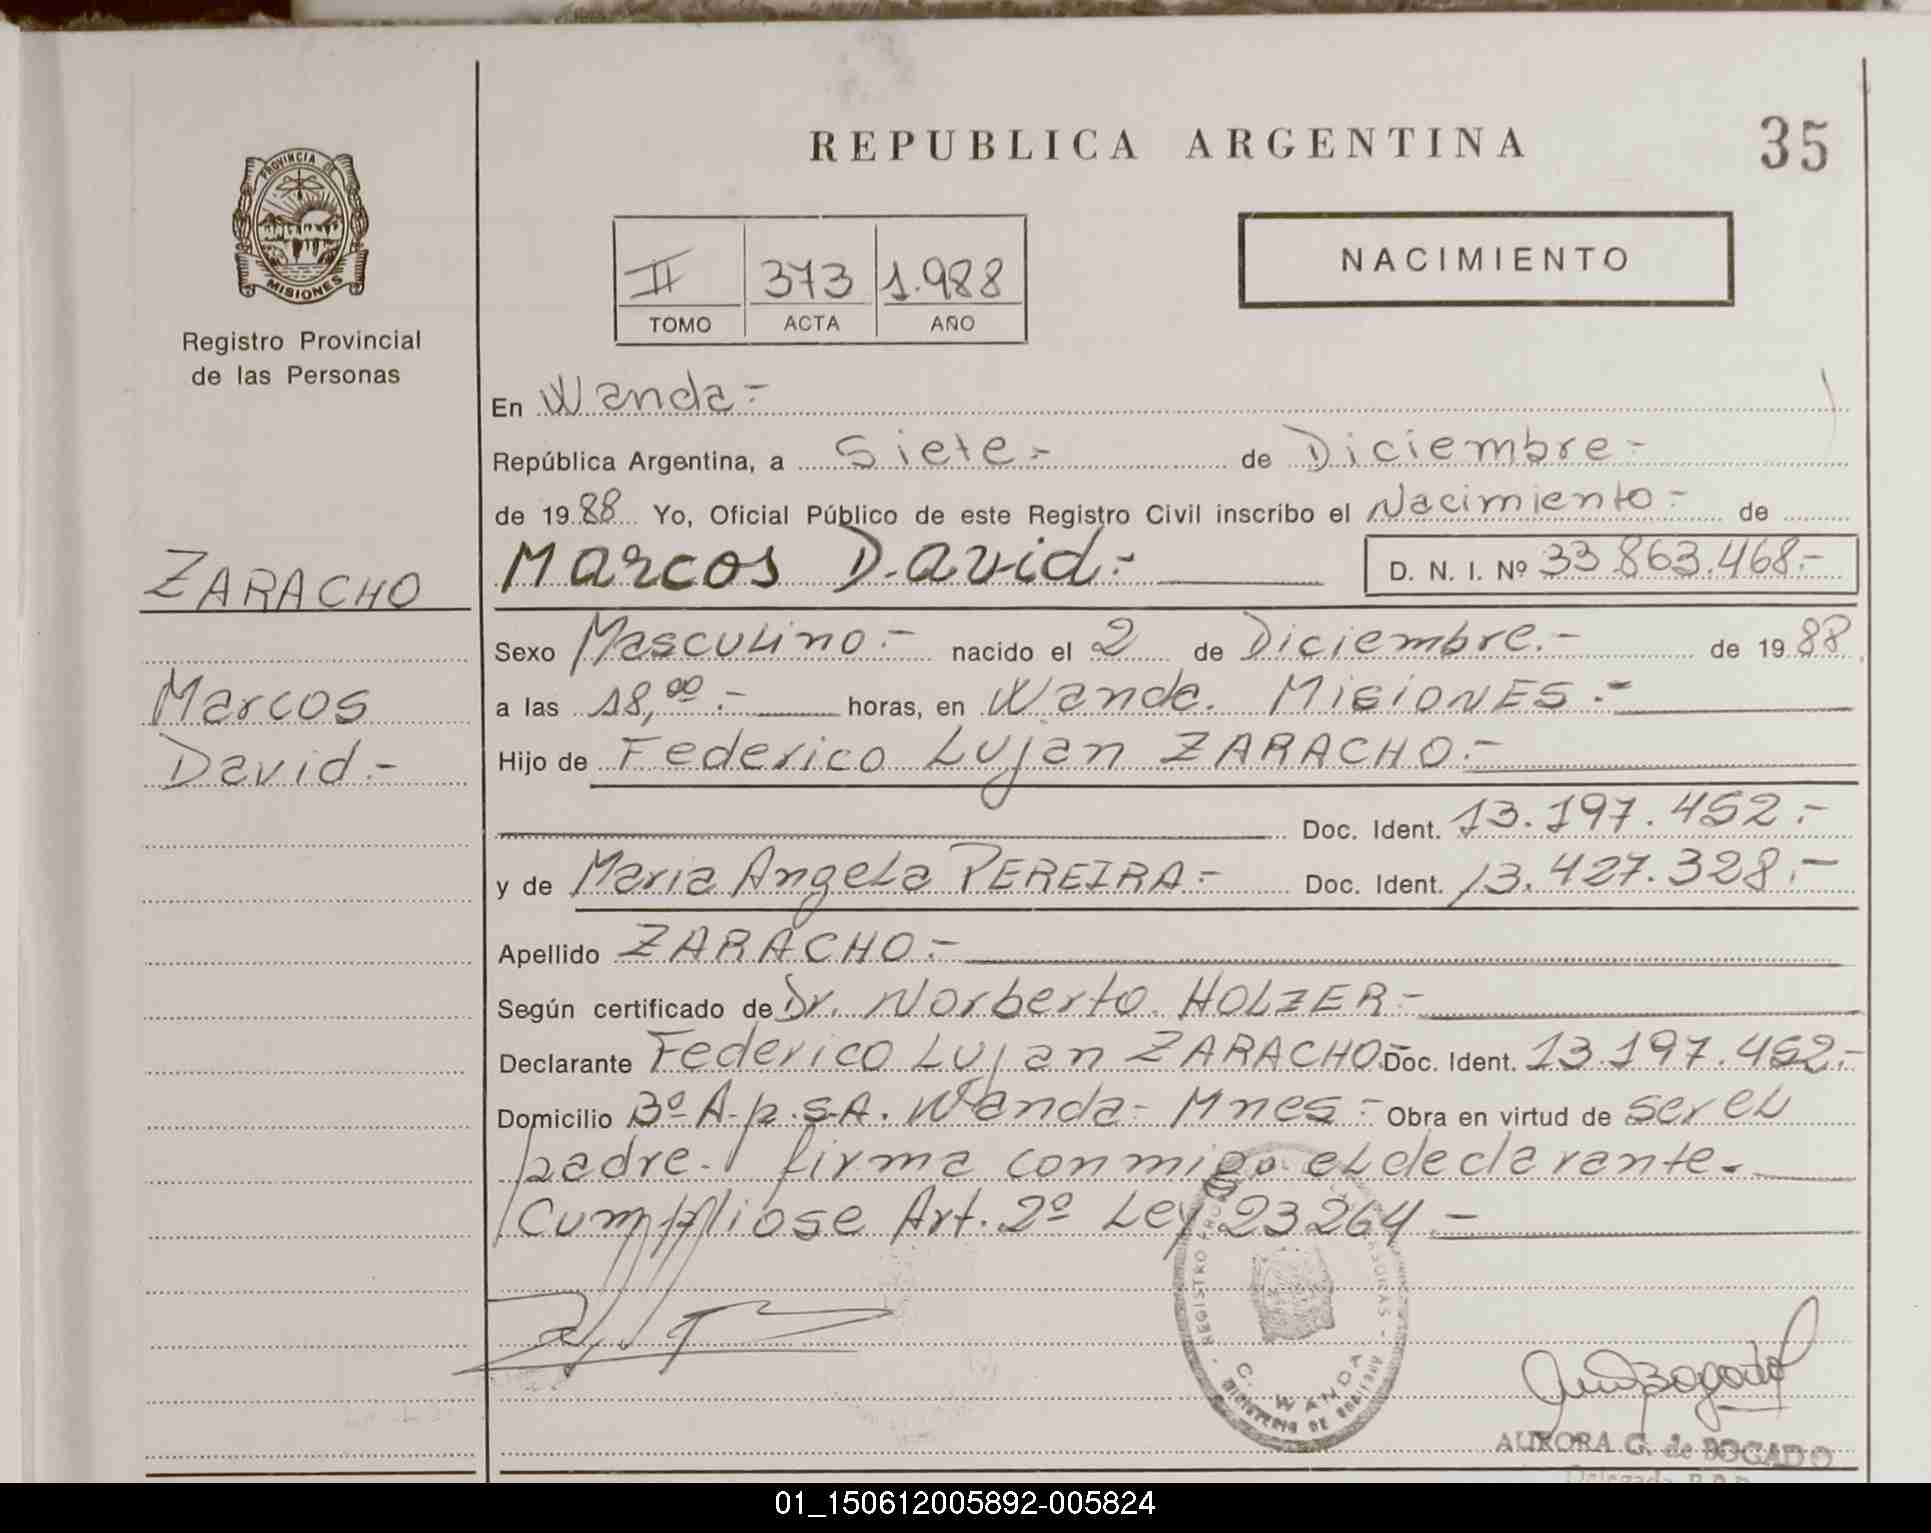 REPUBLICA ARGENTINA
35
PROVINCIA DE
MISIONES
Registro Provincial
de las Personas
II 373 1.988
TOMO ACTA AÑO
NACIMIENTO
En Wanda.-
República Argentina, a Siete.- de Diciembre.-
de 1988 Yo, Oficial Público de este Registro Civil inscribo el Nacimiento.- de
ZARACHO
Marcos David.- D. N. I. Nº 33.863.468.-
Sexo Masculino.- nacido el 2 de Diciembre.- de 1988
Marcos
a las 18,00.- horas, en Wanda. MISIONES.-
David.-
Hijo de Federico Lujan ZARACHO.-
Doc. Ident. 13.197.452.-
y de Maria Angela PEREIRA.- Doc. Ident. 13.427.328.-
Apellido ZARACHO.-
Según certificado de Dr. Norberto HOLZER-
Declarante Federico Lujan ZARACHO.- Doc. Ident. 13.197.452.-
Domicilio Bº A.p.S.A. Wanda- Mnes.- Obra en virtud de ser el
padre. firma conmigo el declarante.
Cumpliose Art. 2º Ley 23264.-
REGISTRO
C. WANDA
MINISTERIO DE GOBIERNO
AURORA G. de BOGADO
01_150612005892-005824